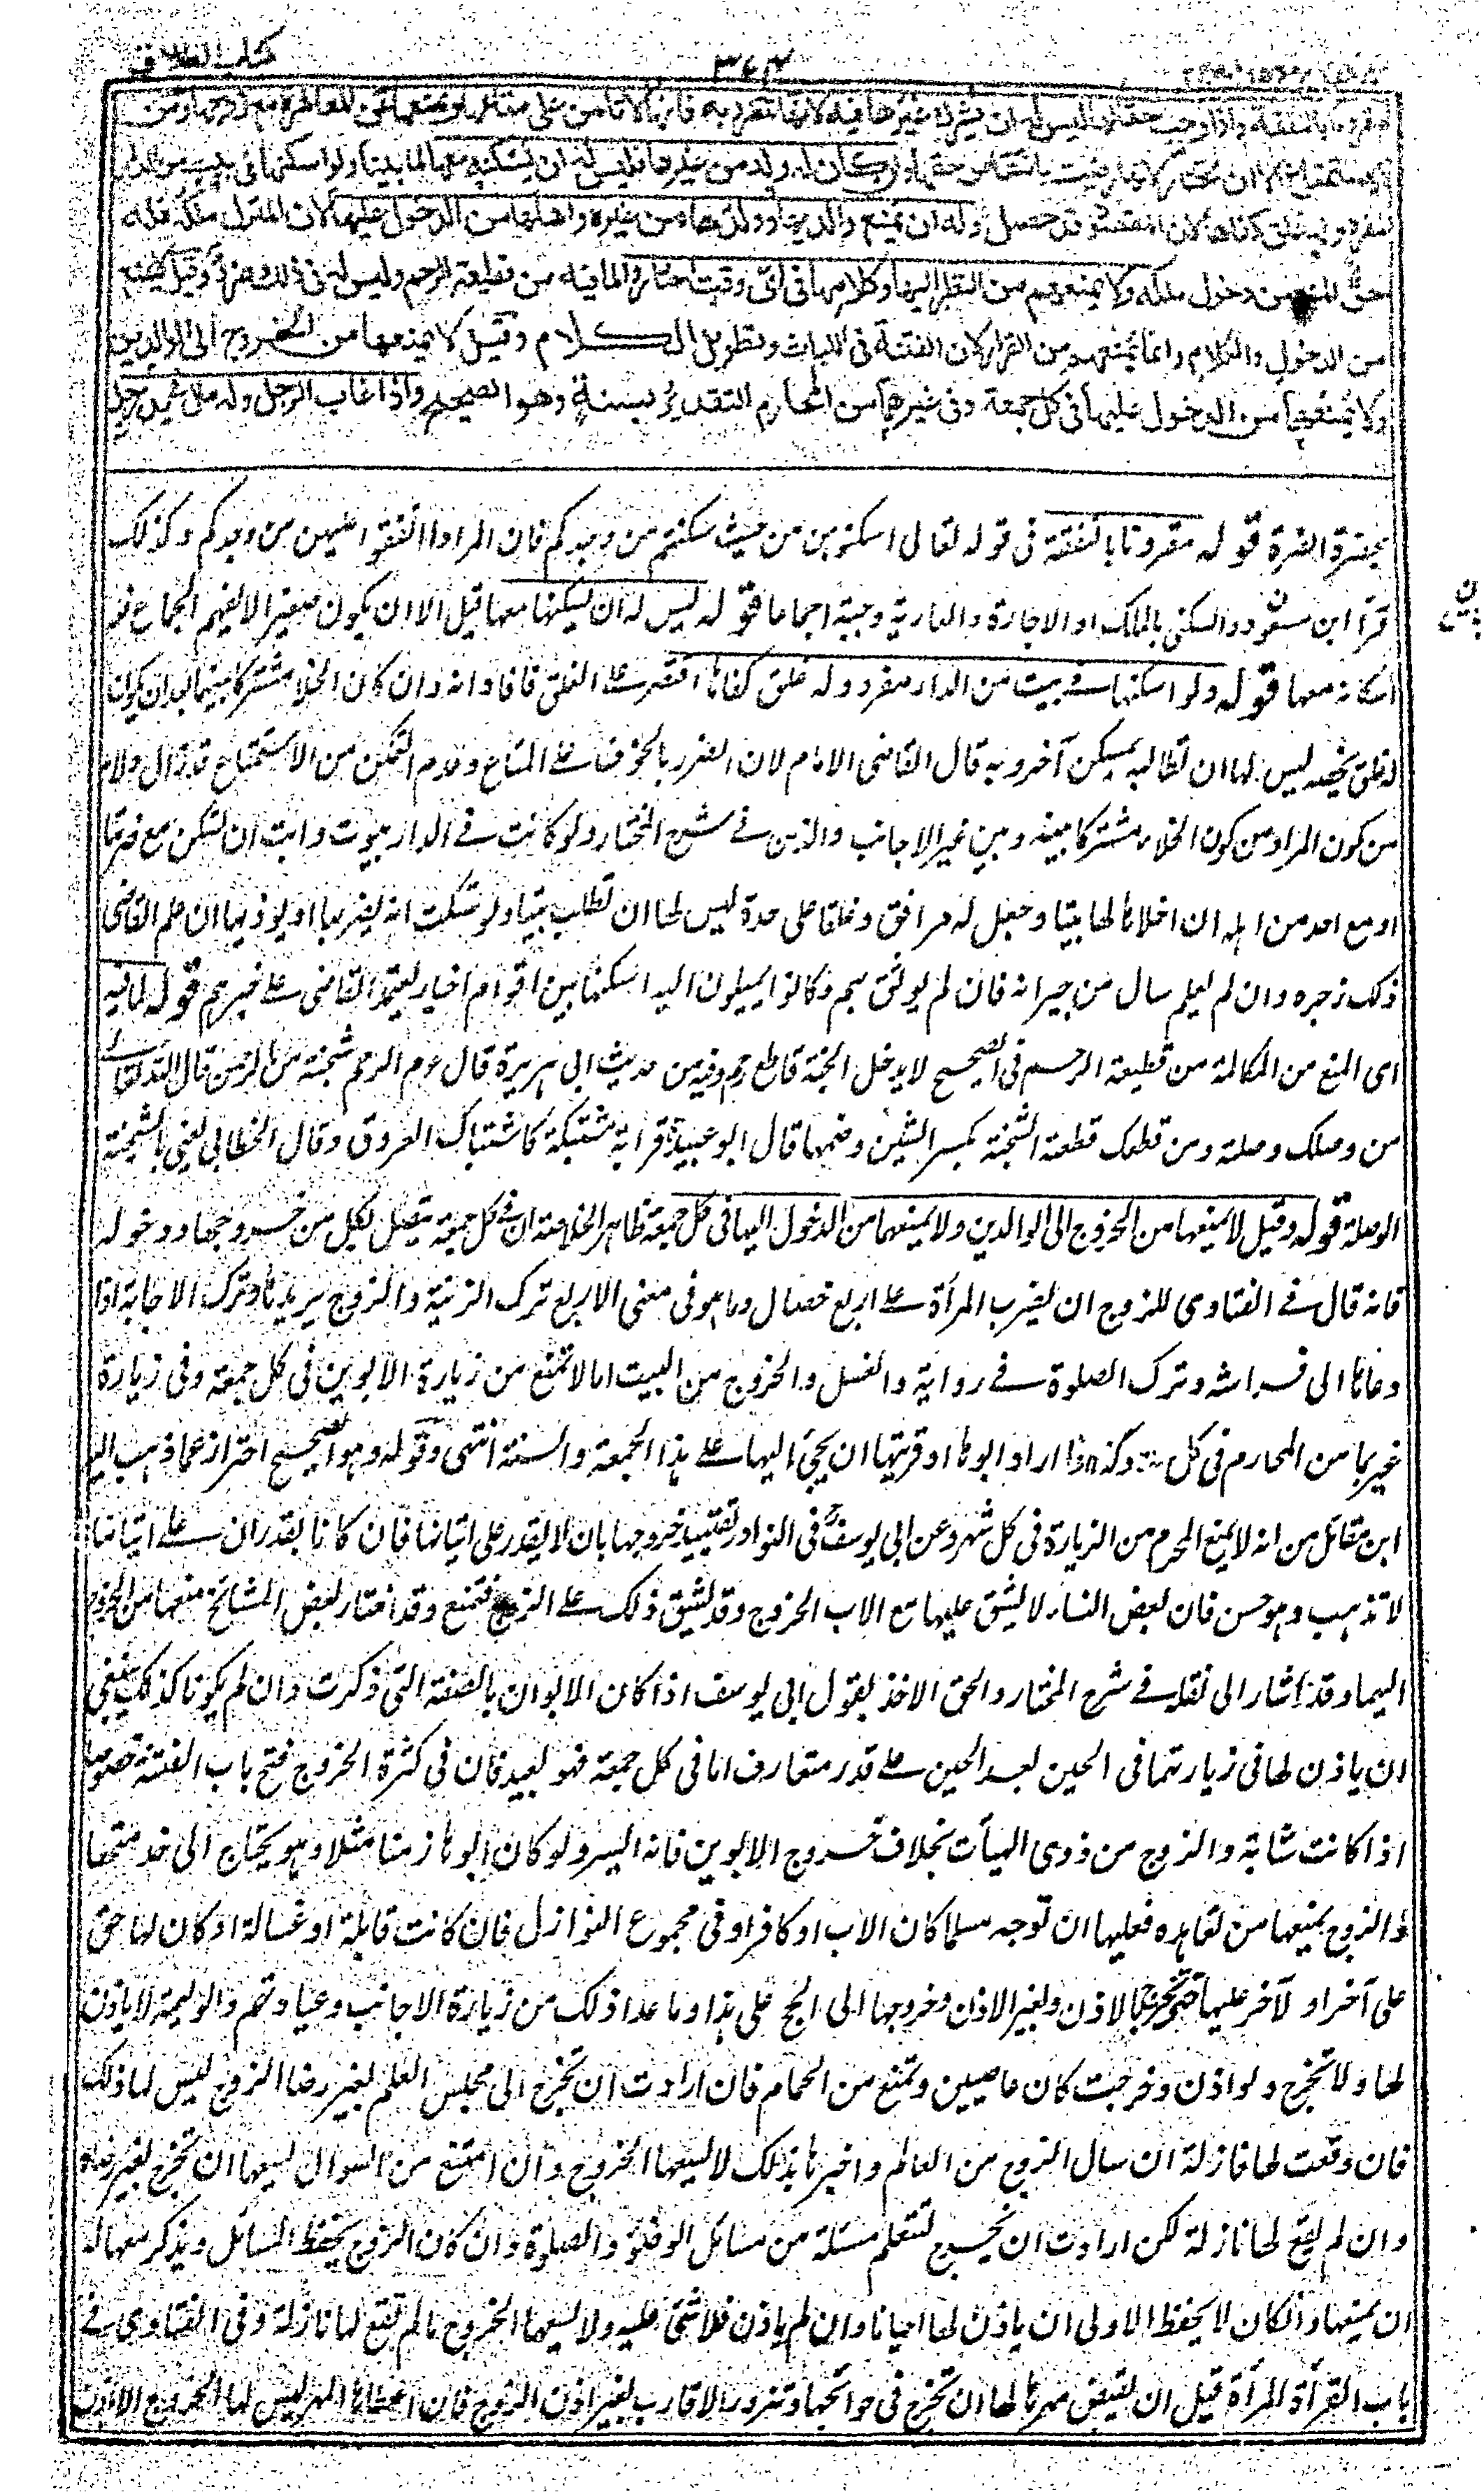 كتاب الطلاق
٣٤٢
مقرونا بالنفقة واذا وجب حقا لها ليس له ان يشرك غيرها فيه لانها تتضرر به فانها لا تامن على متاعها ويمنعها عن المعاشرة مع زوجها ومن
الاستمتاع الا ان تختار لانها رضيت بانتقاص حقها وان كان له ولد من غيرها فليس له ان يسكنه معها لما بينا ولو اسكنها في بيت من الدار
مفرد وله غلق كفاها لان المقصود قد حصل وله ان يمنع والديها وولدها من غيره واهلها من الدخول عليها لان المنزل ملكه فله
حق المنع من دخول ملكه ولا يمنعهم من النظر اليها وكلامها في اى وقت اختاروا لما فيه من قطيعة الرحم وليس له في ذلك ضرر وقيل لا يمنعهم
من الدخول والكلام وانما يمنعهم من القرار لان الفتنة في اللباث وتطويل الكلام وقيل لا يمنعها من الخروج الى الوالدين
ولا يمنعهما من الدخول عليها في كل جمعة وفى غيرهما من المحارم التقدير بسنة وهو الصحيح واذا غاب الرجل وله مال في يد رجل
بحضرة الضرة قوله مقرونا بالنفقة فى قوله تعالى اسكنوهن من حيث سكنتم من وجدكم فان المراد انفقوا عليهن من وجدكم وكذلك
قرأ ابن مسعود والسكنى بالملك او الاجارة والعارية وجبة اجماعا قوله ليس له ان يسكنها معها قيل الا ان يكون صغيرا لا يفهم الجماع فله
اسكانه معها قوله ولو اسكنها فے بيت من الدار مفرد وله غلق كفاها اقتصر علے الغلق فافاد انه وان كان الخلاء مشتركا بينهما بعد ان يكون
له غلق يخصه ليس لها ان تطالبه بمسكن آخر وبه قال القاضى الامام لان الضرر بالخوف علے المتاع وعدم التمكن من الاستمتاع قد زال ولا بد
من كون المراد من كون الخلاء مشتركا بينه وبين غير الاجانب والذى فے شرح المختار ولو كانت فے الدار بيوت وابت ان تسكن مع ضرتها
او مع احد من اهله ان اخلا لها بيتا وجعل له مرافق وغلقا على حدة ليس لها ان تطلب بيتا ولو شكت انه يضربها او يوذيها ان علم القاضى
ذلك زجره وان لم يعلم سال من جيرانه فان لم يوثق بهم وكانوا يميلون اليه اسكنها بين اقوام اخيار يعتمد القاضى علے خبرهم قوله لما فيه
اى المنع من المكالمة من قطيعة الرحم فى الصحيح لا يدخل الجنة قاطع رحم وفيه من حديث ابى هريرة قال عم الرحم شجنة من الرحمن قال الله تعالے
من وصلك وصلته ومن قطعك قطعته الشجنة بكسر الشين وضمها قال ابو عبيدة قرابة مشتبكة كاشتباك العروق وقال الخطابى يعنى بالشجنة
الوصلة قوله وقيل لا يمنعها من الخروج الى الوالدين ولا يمنعهما من الدخول اليها فى كل جمعة ظاهر الخلاصة ان فے كل جمعة يتصل بكل من خروجها ودخوله
فانه قال فے الفتاوى للزوج ان يضرب المرأة علے اربع خصال وما هو فى معنى الاربع ترك الزينة والزوج يريدها وترك الاجابة اذا
دعاها الى فراشه وترك الصلوة فے رواية والغسل والخروج من البيت اما لا تمنع من زيارة الابوين فى كل جمعة وفى زيارة
غيرهما من المحارم فى كل سنة وكذا اذا اراد ابوها او قريبها ان يجئ اليها علے هذا الجمعة والسنة انتهى وقوله وهو الصحيح احتراز عما ذهب اليه
ابن مقاتل من انه لا يمنع المحرم من الزيارة فى كل شهر وعن ابى يوسف فى النوادر تقييد خروجها بان لا يقدر على اتيانها فان كانا يقدران علے اتيانها
لا تذهب وهو حسن فان بعض النساء لا يشق عليها مع الاب الخروج وقد يشق ذلك علے الزوج فتمنع وقد اختار بعض المشائخ منعها من الخروج
اليهما وقد اشار الى نقله فے شرح المختار والحق الاخذ بقول ابى يوسف اذا كان الابوان بالصفة التى ذكرت وان لم يكونا كذلك ينبغى
ان ياذن لها فى زيارتهما فى الحين بعد الحين علے قدر متعارف اما فى كل جمعة فهو بعيد فان فى كثرة الخروج فتح باب الفتنة خصوصا
اذا كانت شابة والزوج من ذوى الهيأت بخلاف خروج الابوين فانه ايسر ولو كان ابوها زمنا مثلا وهو يحتاج الى خدمتها
والزوج يمنعها من تعاهده فعليها ان توجه مسلما كان الاب او كافرا وفى مجموع النوازل فان كانت قابلة او غسالة او كان لها حق
على آخر او لآخر عليها حق تخرج بالاذن وبغير الاذن وخروجها الى الحج على هذا وما عدا ذلك من زيارة الاجانب وعيادتهم والوليمة لا ياذن
لها ولا تخرج ولو اذن وخرجت كان عاصيين وتمنع من الحمام فان ارادت ان تخرج الى مجلس العلم بغير رضا الزوج ليس لها ذلك
فان وقعت لها نازلة ان سال الزوج من العالم واخبرها بذلك لا يسعها الخروج وان امتنع من السوال يسعها ان تخرج بغير رضاه
وان لم يقع لها نازلة لكن ارادت ان تخرج لتعلم مسئلة من مسائل الوضوء والصلوة وان كان الزوج يحفظ المسائل ويذكر معها له
ان يمنعها وان كان لا يحفظ الاولى ان ياذن لها احيانا وان لم ياذن فلا شئ عليه ولا يسعها الخروج ما لم تقع لها نازلة وفى الفتاوى فے
باب القرأة المرأة قبل ان تقبض مهرها لها ان تخرج فى حوائجها وتزور الاقارب بغير اذن الزوج فان اعطاها المهر ليس لها الخروج الا باذن